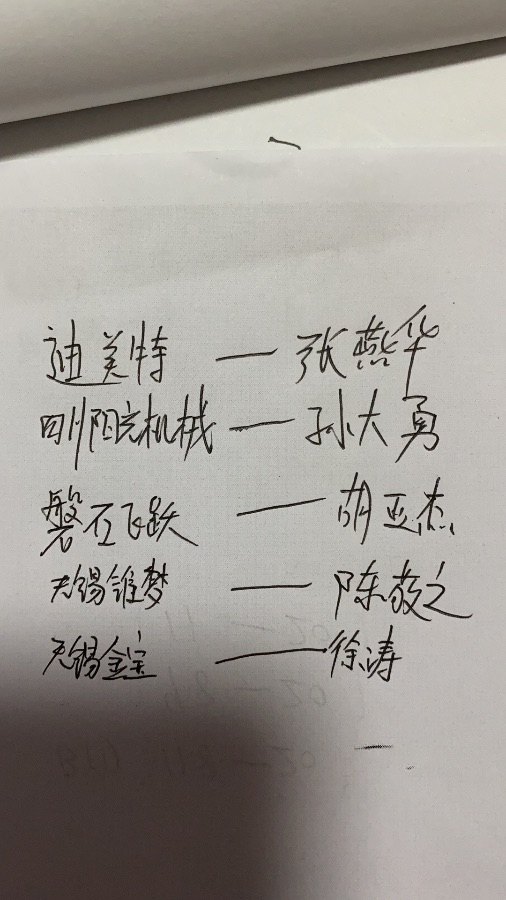 迪美特 — 张燕华
四川阳光机械 — 孙大勇
磐石飞跃 — 胡亚杰
无锡锥梦 — 陈敬之
无锡金宝 — 徐涛